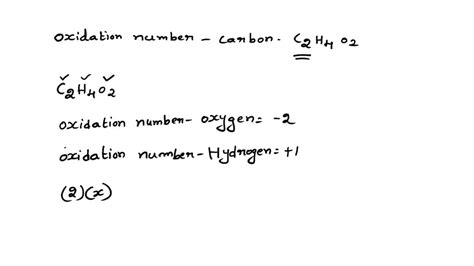 oxidation number - carbon. C2H4O2
C2H4O2
oxidation number- oxygen= -2
oxidation number-Hydrogen=+1
(2)(x)